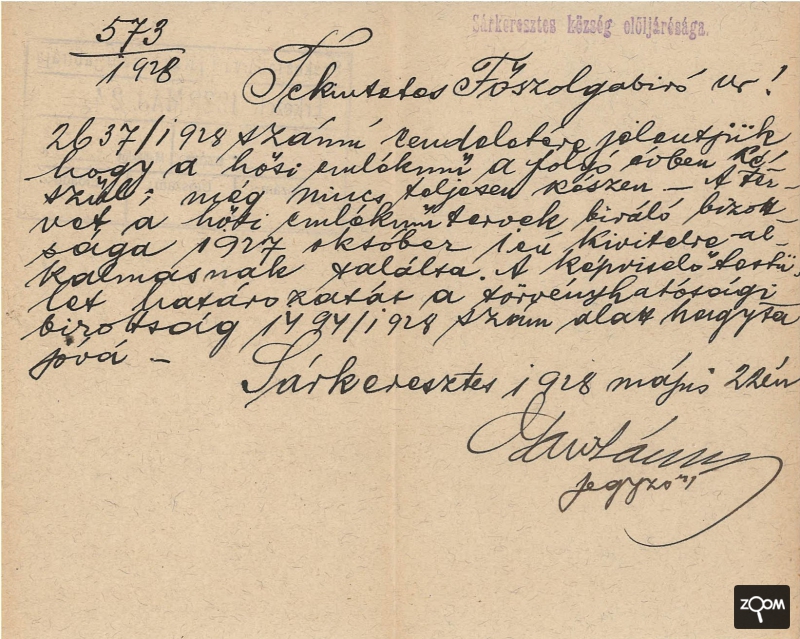 573
1928
Sárkeresztes község elöljárósága.
Tekintetes Főszolgabiró ur!
2637/1928 számú rendeletére jelentjük
hogy a hősi emlékmű a folyó évben ké-
szül; még nincs teljesen készen – A ter-
vet a hősi emlékműtervek biráló bizott
sága 1927 október 1én kivitelre al-
kalmasnak találta. A képviselőtestü
let határozatát a törvényhatósági
bizottság 1494/1928 szám alatt hagyta
jová –
Sárkeresztes 1928 május 22én
jegyző
ZOOM